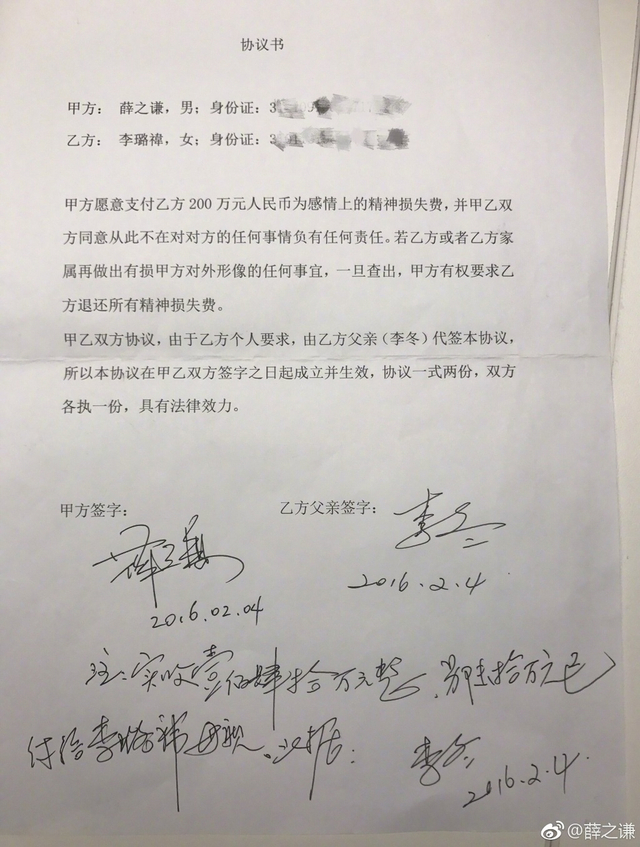 协议书
甲方： 薛之谦，男；身份证：3
乙方： 李璐禕，女；身份证：3
甲方愿意支付乙方 200 万元人民币为感情上的精神损失费，并甲乙双
方同意从此不在对对方的任何事情负有任何责任。若乙方或者乙方家
属再做出有损甲方对外形像的任何事宜，一旦查出，甲方有权要求乙
方退还所有精神损失费。
甲乙双方协议，由于乙方个人要求，由乙方父亲（李冬）代签本协议，
所以本协议在甲乙双方签字之日起成立并生效，协议一式两份，双方
各执一份，具有法律效力。
甲方签字： 乙方父亲签字： 李冬
薛之谦 2016.2.4
2016.02.04
注：实收壹佰肆拾万元整，陆拾万元已
付给李璐禕母亲。收据：李冬
2016.2.4
@薛之谦